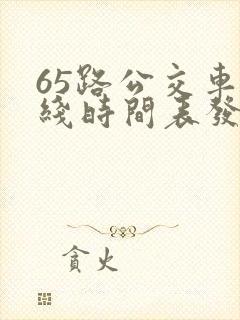 65路公交車
綫時間表發
貪火